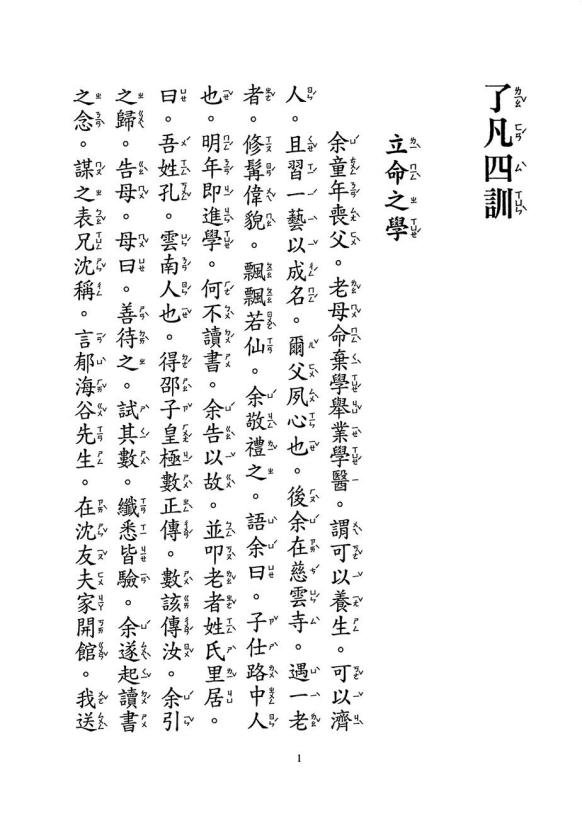 了凡四訓
立命之學
余童年喪父。老母命棄學舉業學醫。謂可以養生。可以濟
人。且習一藝以成名。爾父夙心也。後余在慈雲寺。遇一老
者。修髯偉貌。飄飄若仙。余敬禮之。語余曰。子仕路中人
也。明年即進學。何不讀書。余告以故。並叩老者姓氏里居。
曰。吾姓孔。雲南人也。得邵子皇極數正傳。數該傳汝。余引
之歸。告母。母曰。善待之。試其數。纖悉皆驗。余遂起讀書
之念。謀之表兄沈稱。言郁海谷先生。在沈友夫家開館。我送
1